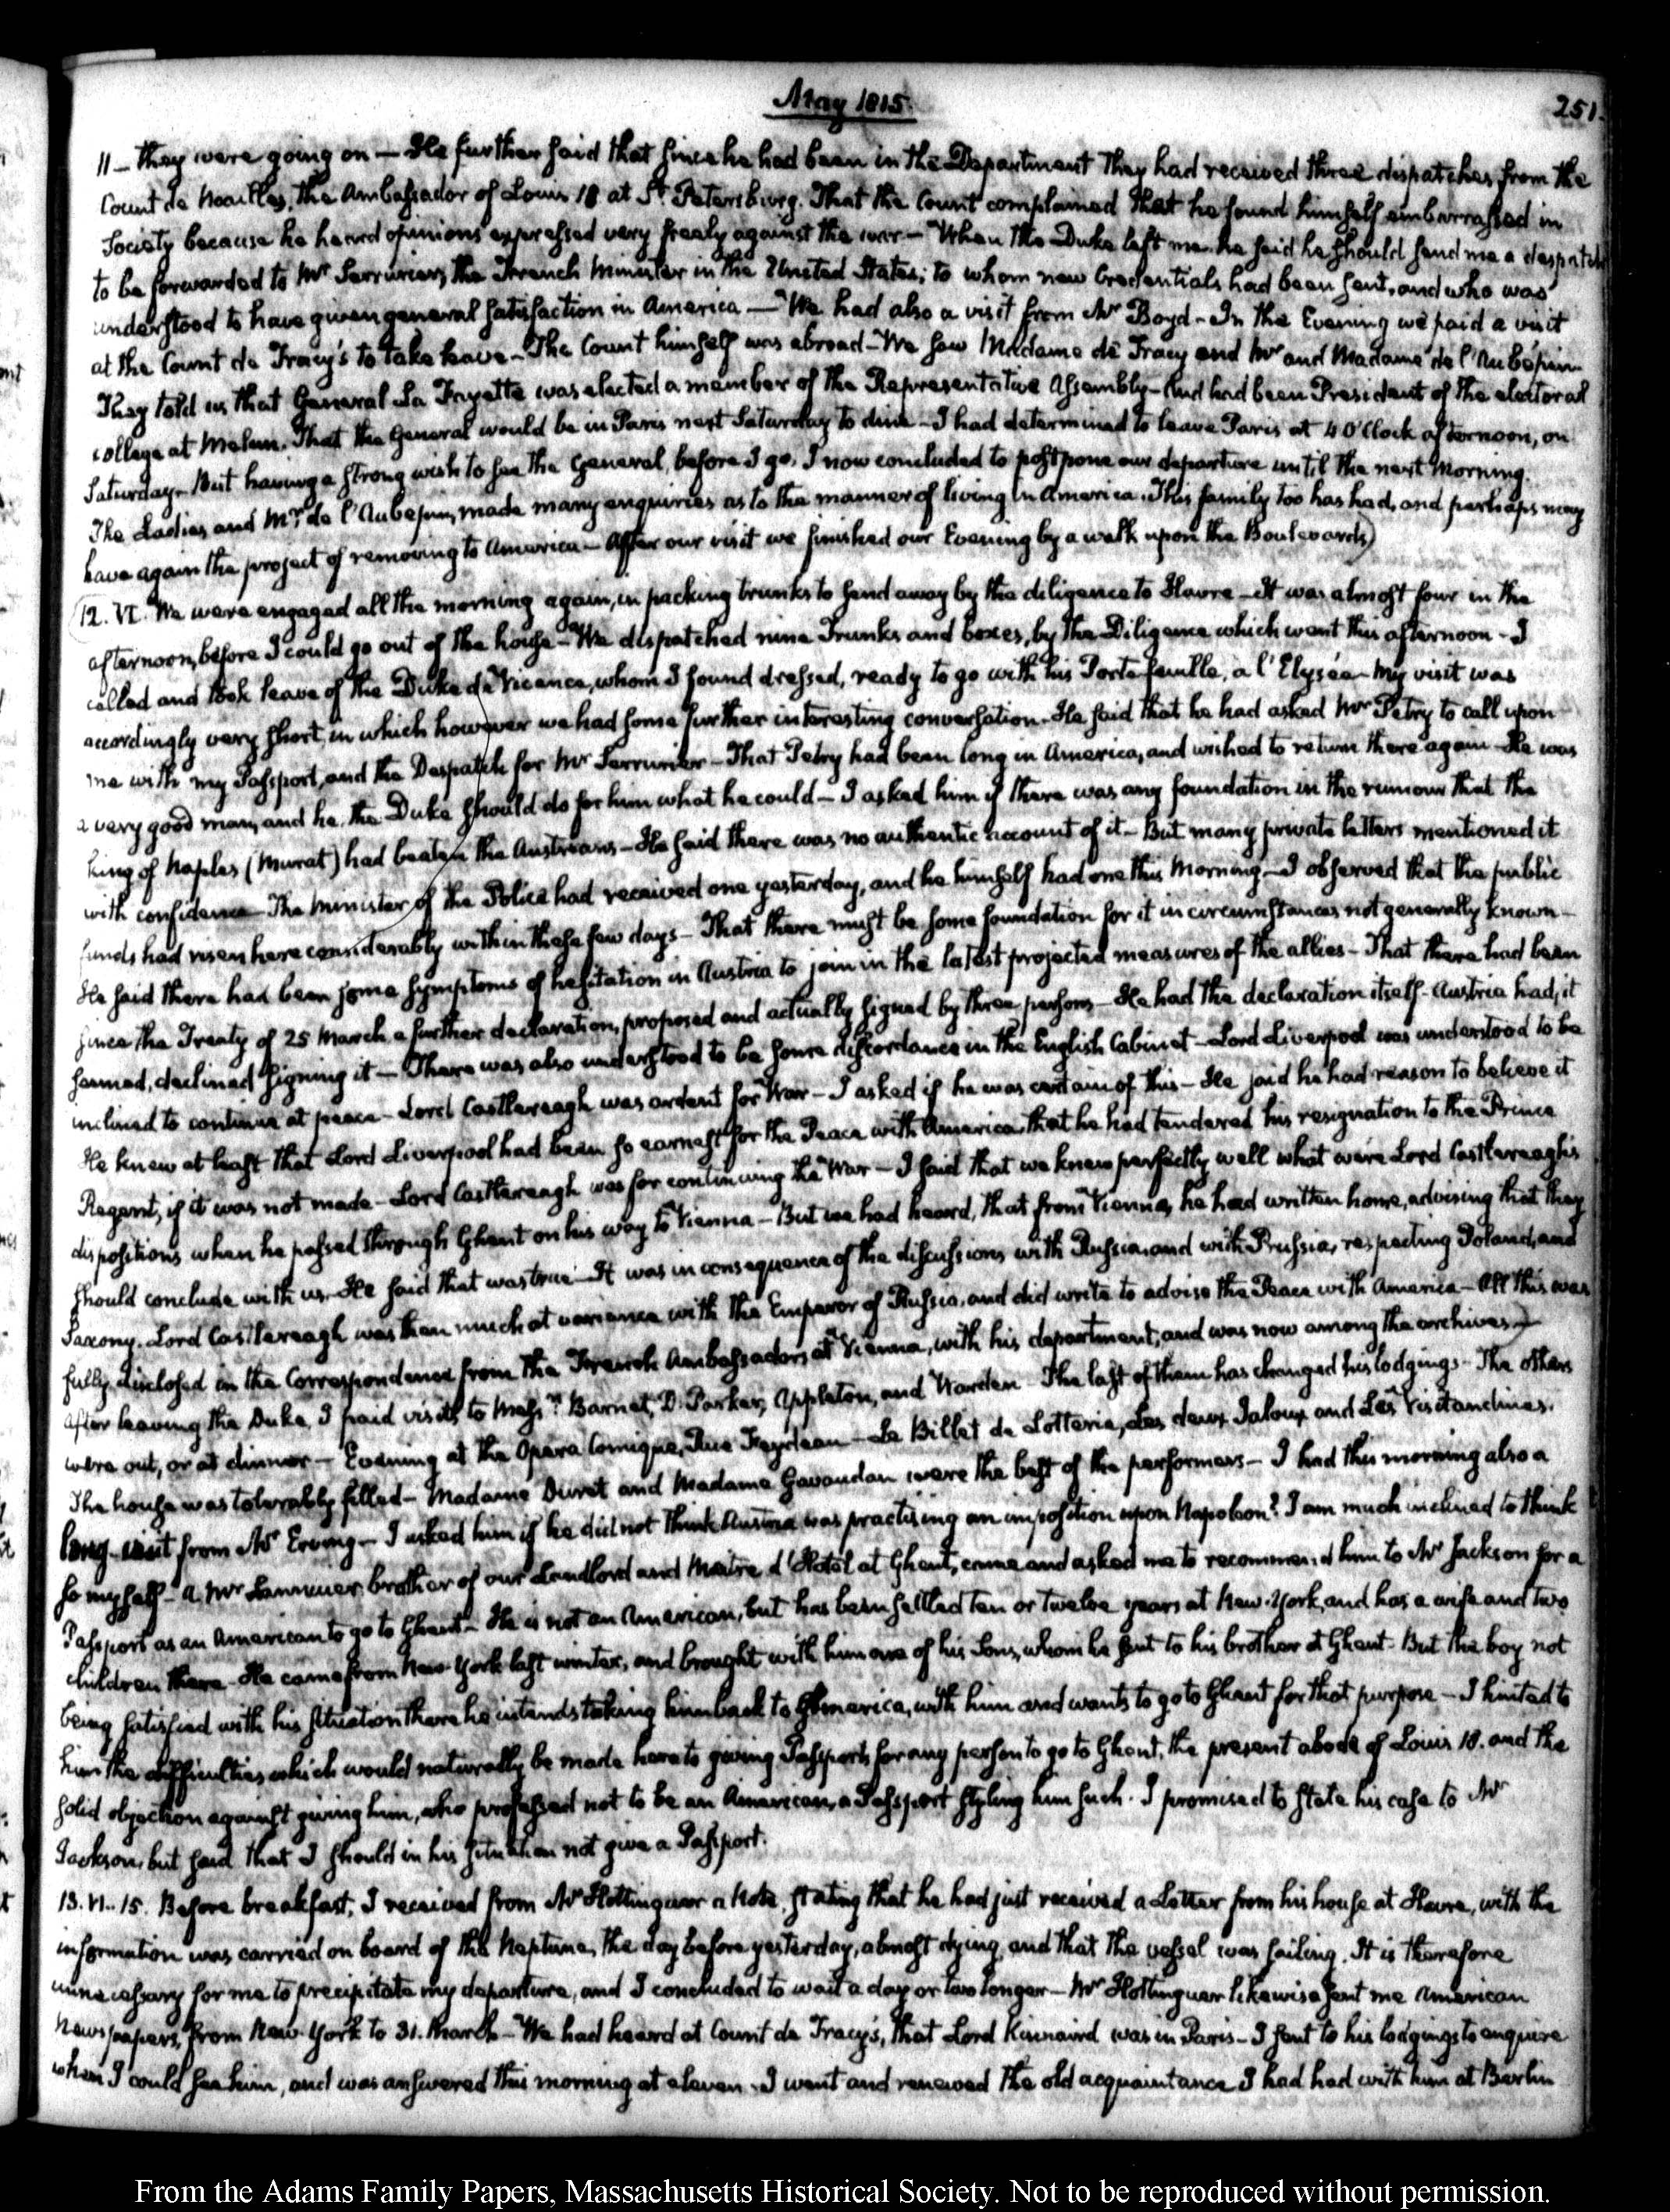 May 1815.
251.
11 — they were going on — He further said that since he had been in the Department they had received three dispatches from the
Count de Noailles, the Ambassador of Louis 18 at St. Petersburg. That the Count complained that he found himself embarrassed in
Society because he heard opinions expressed very freely against the war — When the Duke left me he said he should send me a despatch
to be forwarded to Mr Serrurier, the French Minister in the United States; to whom new Credentials had been sent, and who was
understood to have given general satisfaction in America — We had also a visit from Mr Boyd — In the Evening we paid a visit
at the Count de Tracy's to take leave — The Count himself was abroad — We saw Madame de Tracy and Mr and Madame de l'Aubépin
They told us that General La Fayette was elected a member of the Representative Assembly — And had been President of the electoral
college at Melun. That the General would be in Paris next Saturday to dine — I had determined to leave Paris at 4 O'Clock afternoon, on
Saturday — But having a strong wish to see the General, before I go, I now concluded to postpone our departure until the next Morning.
The Ladies and Mr de l'Aubepin, made many enquiries as to the manner of living in America. This family too has had, and perhaps may
have again the project of removing to America — After our visit we finished our Evening by a walk upon the Boulevards)
12. VI. We were engaged all the morning again, in packing trunks to send away by the diligence to Havre — It was almost four in the
afternoon, before I could go out of the house — We dispatched nine Trunks and boxes, by the Diligence which went this afternoon — I
called and took leave of the Duke de Vicence, whom I found dressed, ready to go with his Porte-feuille, a l'Elysée — My visit was
accordingly very short, in which however we had some further interesting conversation. He said that he had asked Mr Petry to call upon
me with my Passport, and the Despatch for Mr Serrurier — That Petry had been long in America, and wished to return there again — He was
a very good man, and he the Duke should do for him what he could — I asked him if there was any foundation in the rumour that the
king of Naples (Murat) had beaten the Austrians — He said there was no authentic account of it — But many private letters mentioned it
with confidence — The Minister of the Police had received one yesterday, and he himself had one this Morning — I observed that the public
funds had risen here considerably within these few days — That there must be some foundation for it in circumstances not generally known —
He said there had been some symptoms of hesitation in Austria to join in the latest projected measures of the allies — That there had been
since the Treaty of 25 March a further declaration, proposed and actually signed by three persons — He had the declaration itself — Austria had, it
seemed, declined signing it — There was also understood to be some discordance in the English Cabinet — Lord Liverpool was understood to be
inclined to continue at peace — Lord Castlereagh was ardent for War — I asked if he was certain of this — He said he had reason to believe it
He knew at least that Lord Liverpool had been so earnest for the Peace with America that he had tendered his resignation to the Prince
Regent, if it was not made — Lord Castlereagh was for continuing the War — I said that we knew perfectly well what were Lord Castlereagh's
dispositions when he passed through Ghent on his way to Vienna — But we had heard, that from Vienna, he had written home, advising that they
should conclude with us. He said that was true — It was in consequence of the discussions with Russia, and with Prussia, respecting Poland, and
Saxony. Lord Castlereagh was then much at variance with the Emperor of Russia, and did write to advise the Peace with America — All this was
fully disclosed in the Correspondence from the French Ambassadors at Vienna, with his department, and was now among the archives)
After leaving the Duke, I paid visits to Messrs. Barnet, D. Parker, Appleton, and Warden — The last of them has changed his lodgings — The others
were out, or at dinner — Evening at the Opera Comique, Rue Feydeau — Le Billet de Lotterie, Les deux Jaloux and Les Visitandines.
The house was tolerably filled — Madame Duret and Madame Gavaudan were the best of the performers — I had this morning also a
long visit from Mr Erving — I asked him if he did not think Austria was practising an imposition upon Napoleon? I am much inclined to think
so myself — A Mr Lannuier, brother of our Landlord and Maître d'Hotel at Ghent, came and asked me to recommend him to Mr Jackson for a
Passport as an American to go to Ghent — He is not an American, but has been settled ten or twelve years at New-York, and has a wife and two
children there — He came from New York last winter, and brought with him one of his Sons, whom he sent to his brother at Ghent — But the boy not
being satisfied with his situation there he intends taking him back to America, with him and wants to go to Ghent for that purpose — I hinted to
him the difficulties which would naturally be made here to giving Passports for any person to go to Ghent, the present abode of Louis 18. and the
solid objection against giving him, who professed not to be an American, a Passport styling him such. I promised to state his case to Mr
Jackson, but said that I should in his situation not give a Passport.
13. VI. 15. Before breakfast, I received from Mr Hottinguer a Note, stating that he had just received a Letter from his house at Havre, with the
information was carried on board of the Neptune, the day before yesterday, almost dying, and that the vessel was sailing. It is therefore
unnecessary for me to precipitate my departure, and I concluded to wait a day or two longer — Mr Hottinguer likewise sent me American
Newspapers, from New-York to 31. March — We had heard at Count de Tracy's, that Lord Kinnaird was in Paris — I sent to his lodgings to enquire
when I could see him, and was answered this morning at eleven. I went and renewed the old acquaintance I had had with him at Berlin
From the Adams Family Papers, Massachusetts Historical Society. Not to be reproduced without permission.